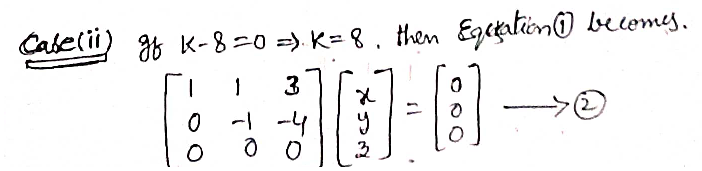 Case(ii) If K-8=0 => K=8, then Equation① becomes.
[1 1 3] [x] = [0]
[0 -1 -4] [y] = [0] ⟶②
[0 0 0] [z] = [0]